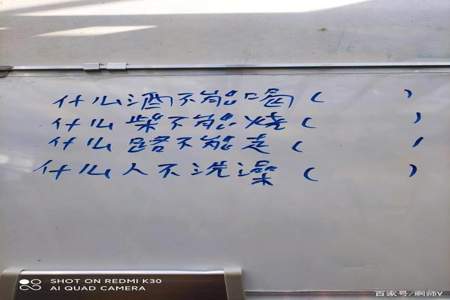 什么酒不能喝（　　）
什么柴不能烧（　　）
什么路不能走（　　）
什么人不洗澡（　　）
SHOT ON REDMI K30
AI QUAD CAMERA